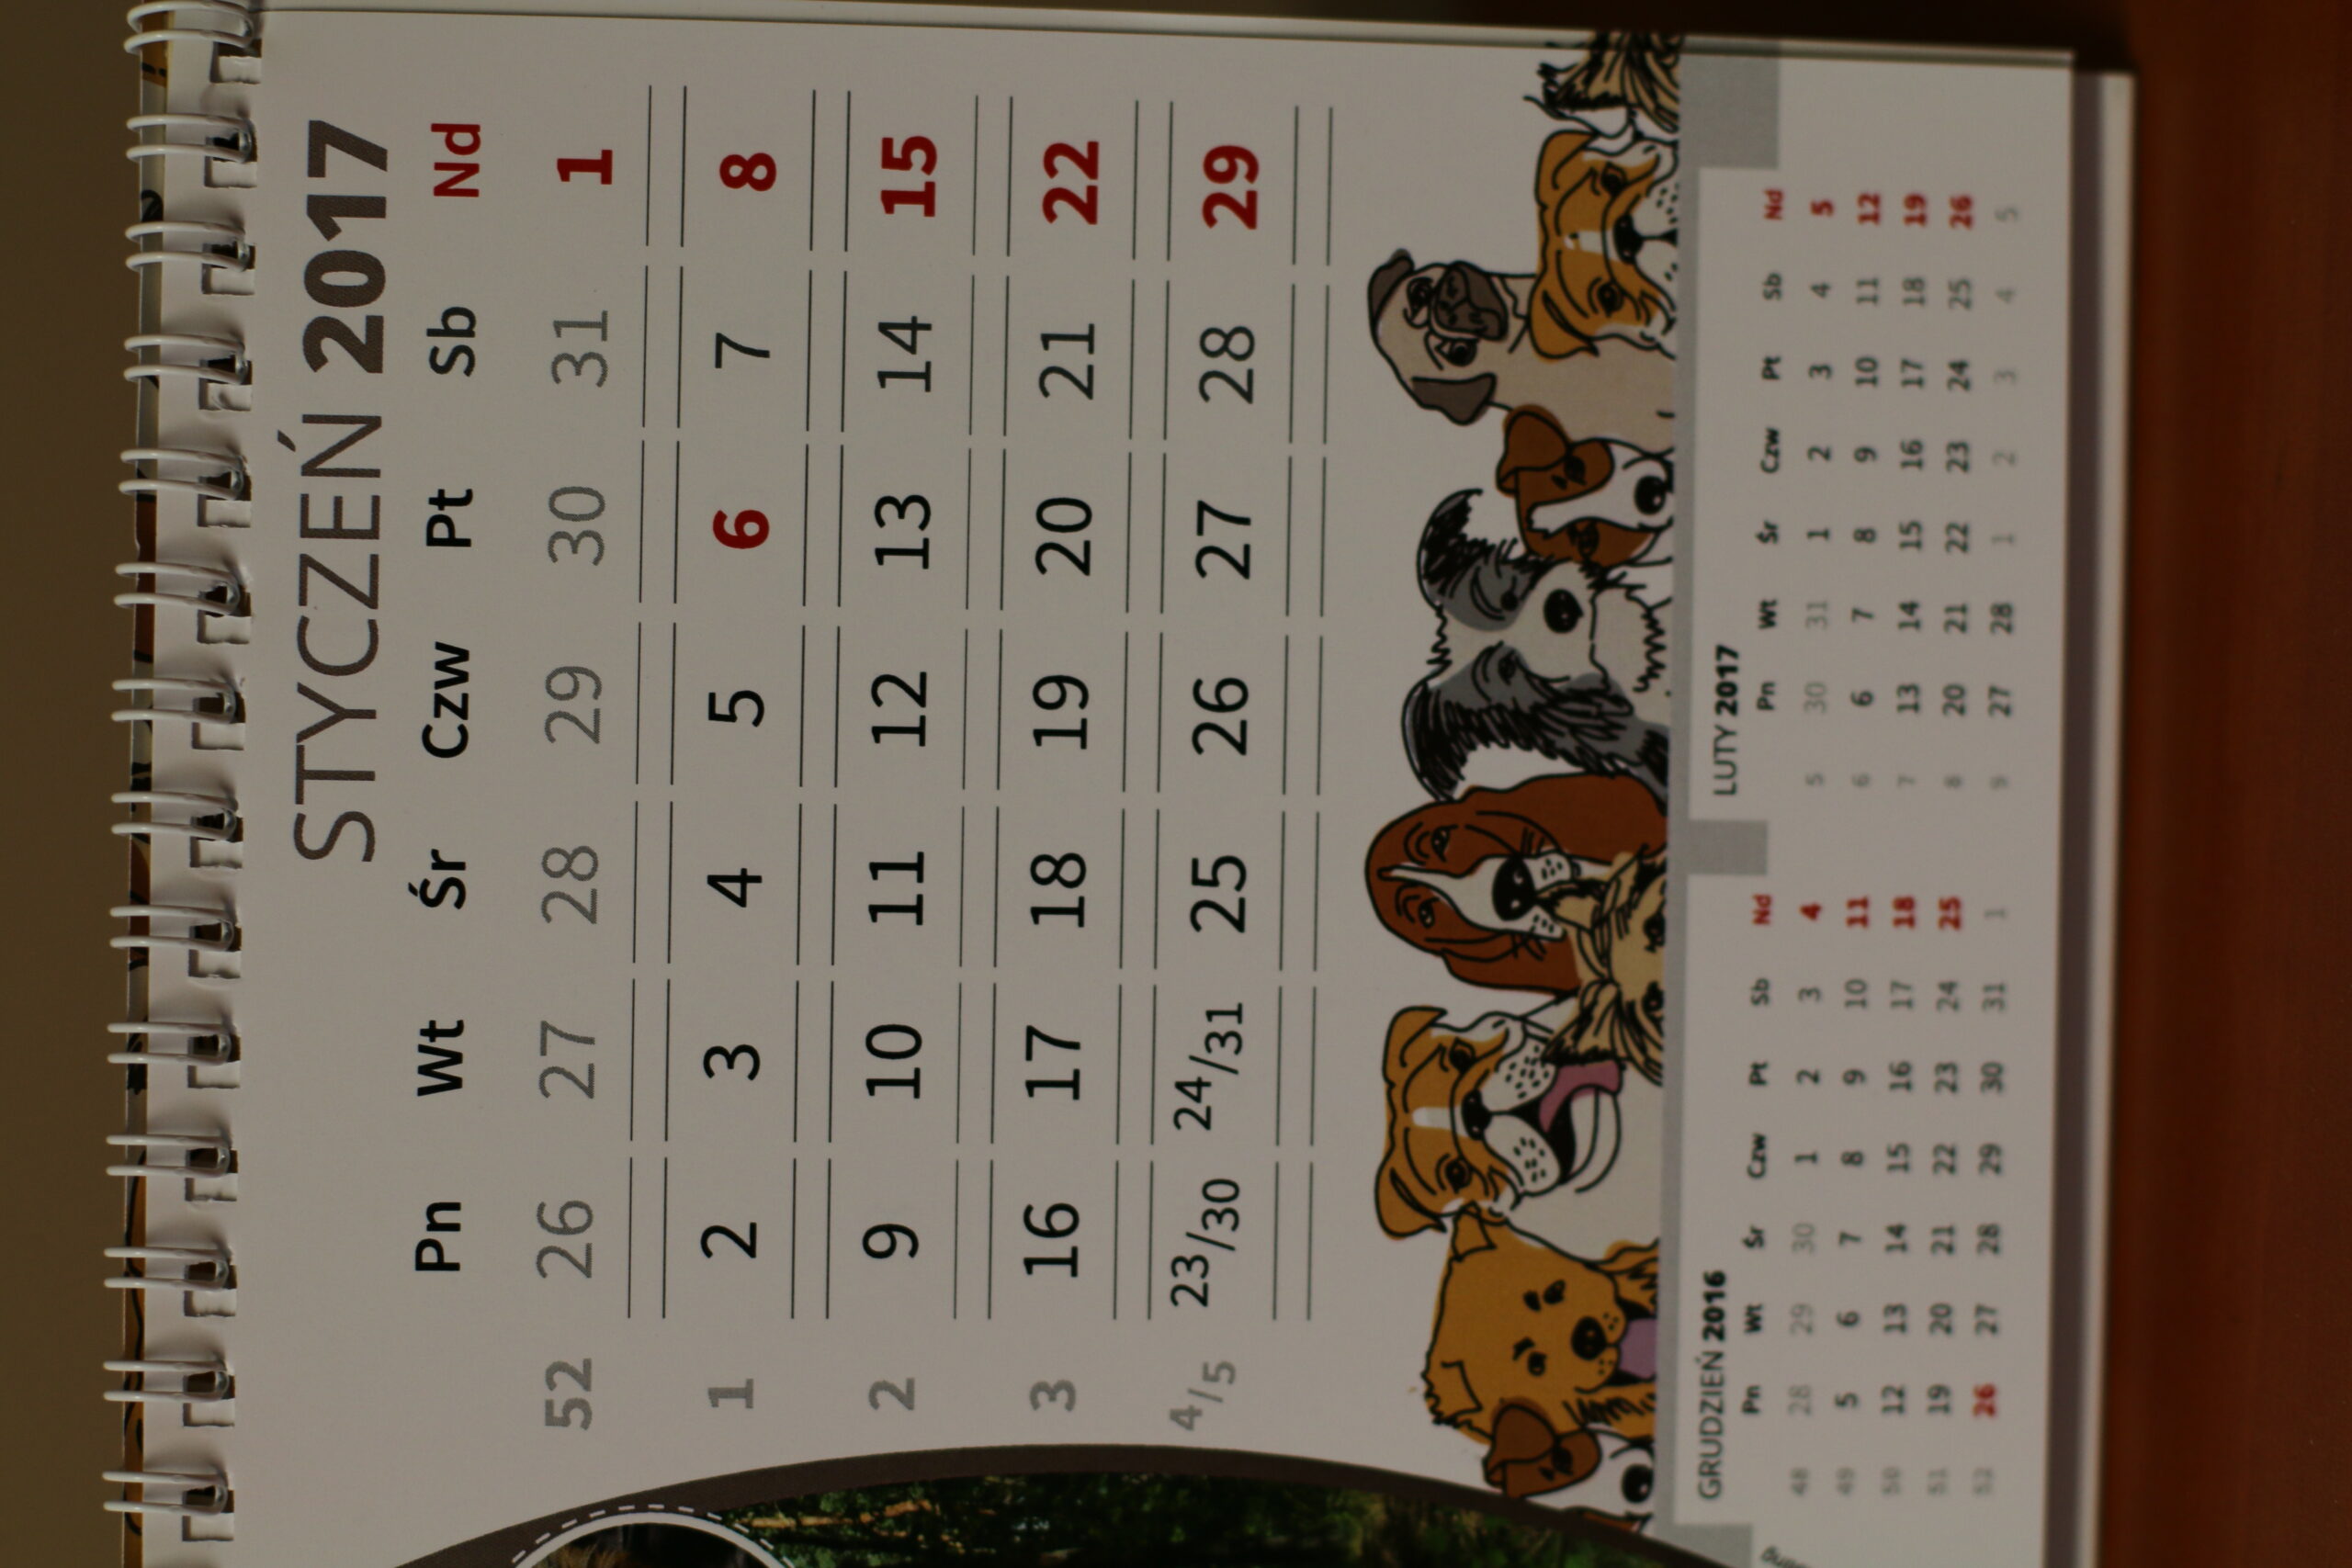 STYCZEŃ 2017
Pn Wt Śr Czw Pt Sb Nd
52 26 27 28 29 30 31 1
1 2 3 4 5 6 7 8
2 9 10 11 12 13 14 15
3 16 17 18 19 20 21 22
4/5 23/30 24/31 25 26 27 28 29
GRUDZIEŃ 2016
Pn Wt Śr Czw Pt Sb Nd
48 28 29 30 1 2 3 4
49 5 6 7 8 9 10 11
50 12 13 14 15 16 17 18
51 19 20 21 22 23 24 25
52 26 27 28 29 30 31 1
LUTY 2017
Pn Wt Śr Czw Pt Sb Nd
5 30 31 1 2 3 4 5
6 6 7 8 9 10 11 12
7 13 14 15 16 17 18 19
8 20 21 22 23 24 25 26
9 27 28 1 2 3 4 5